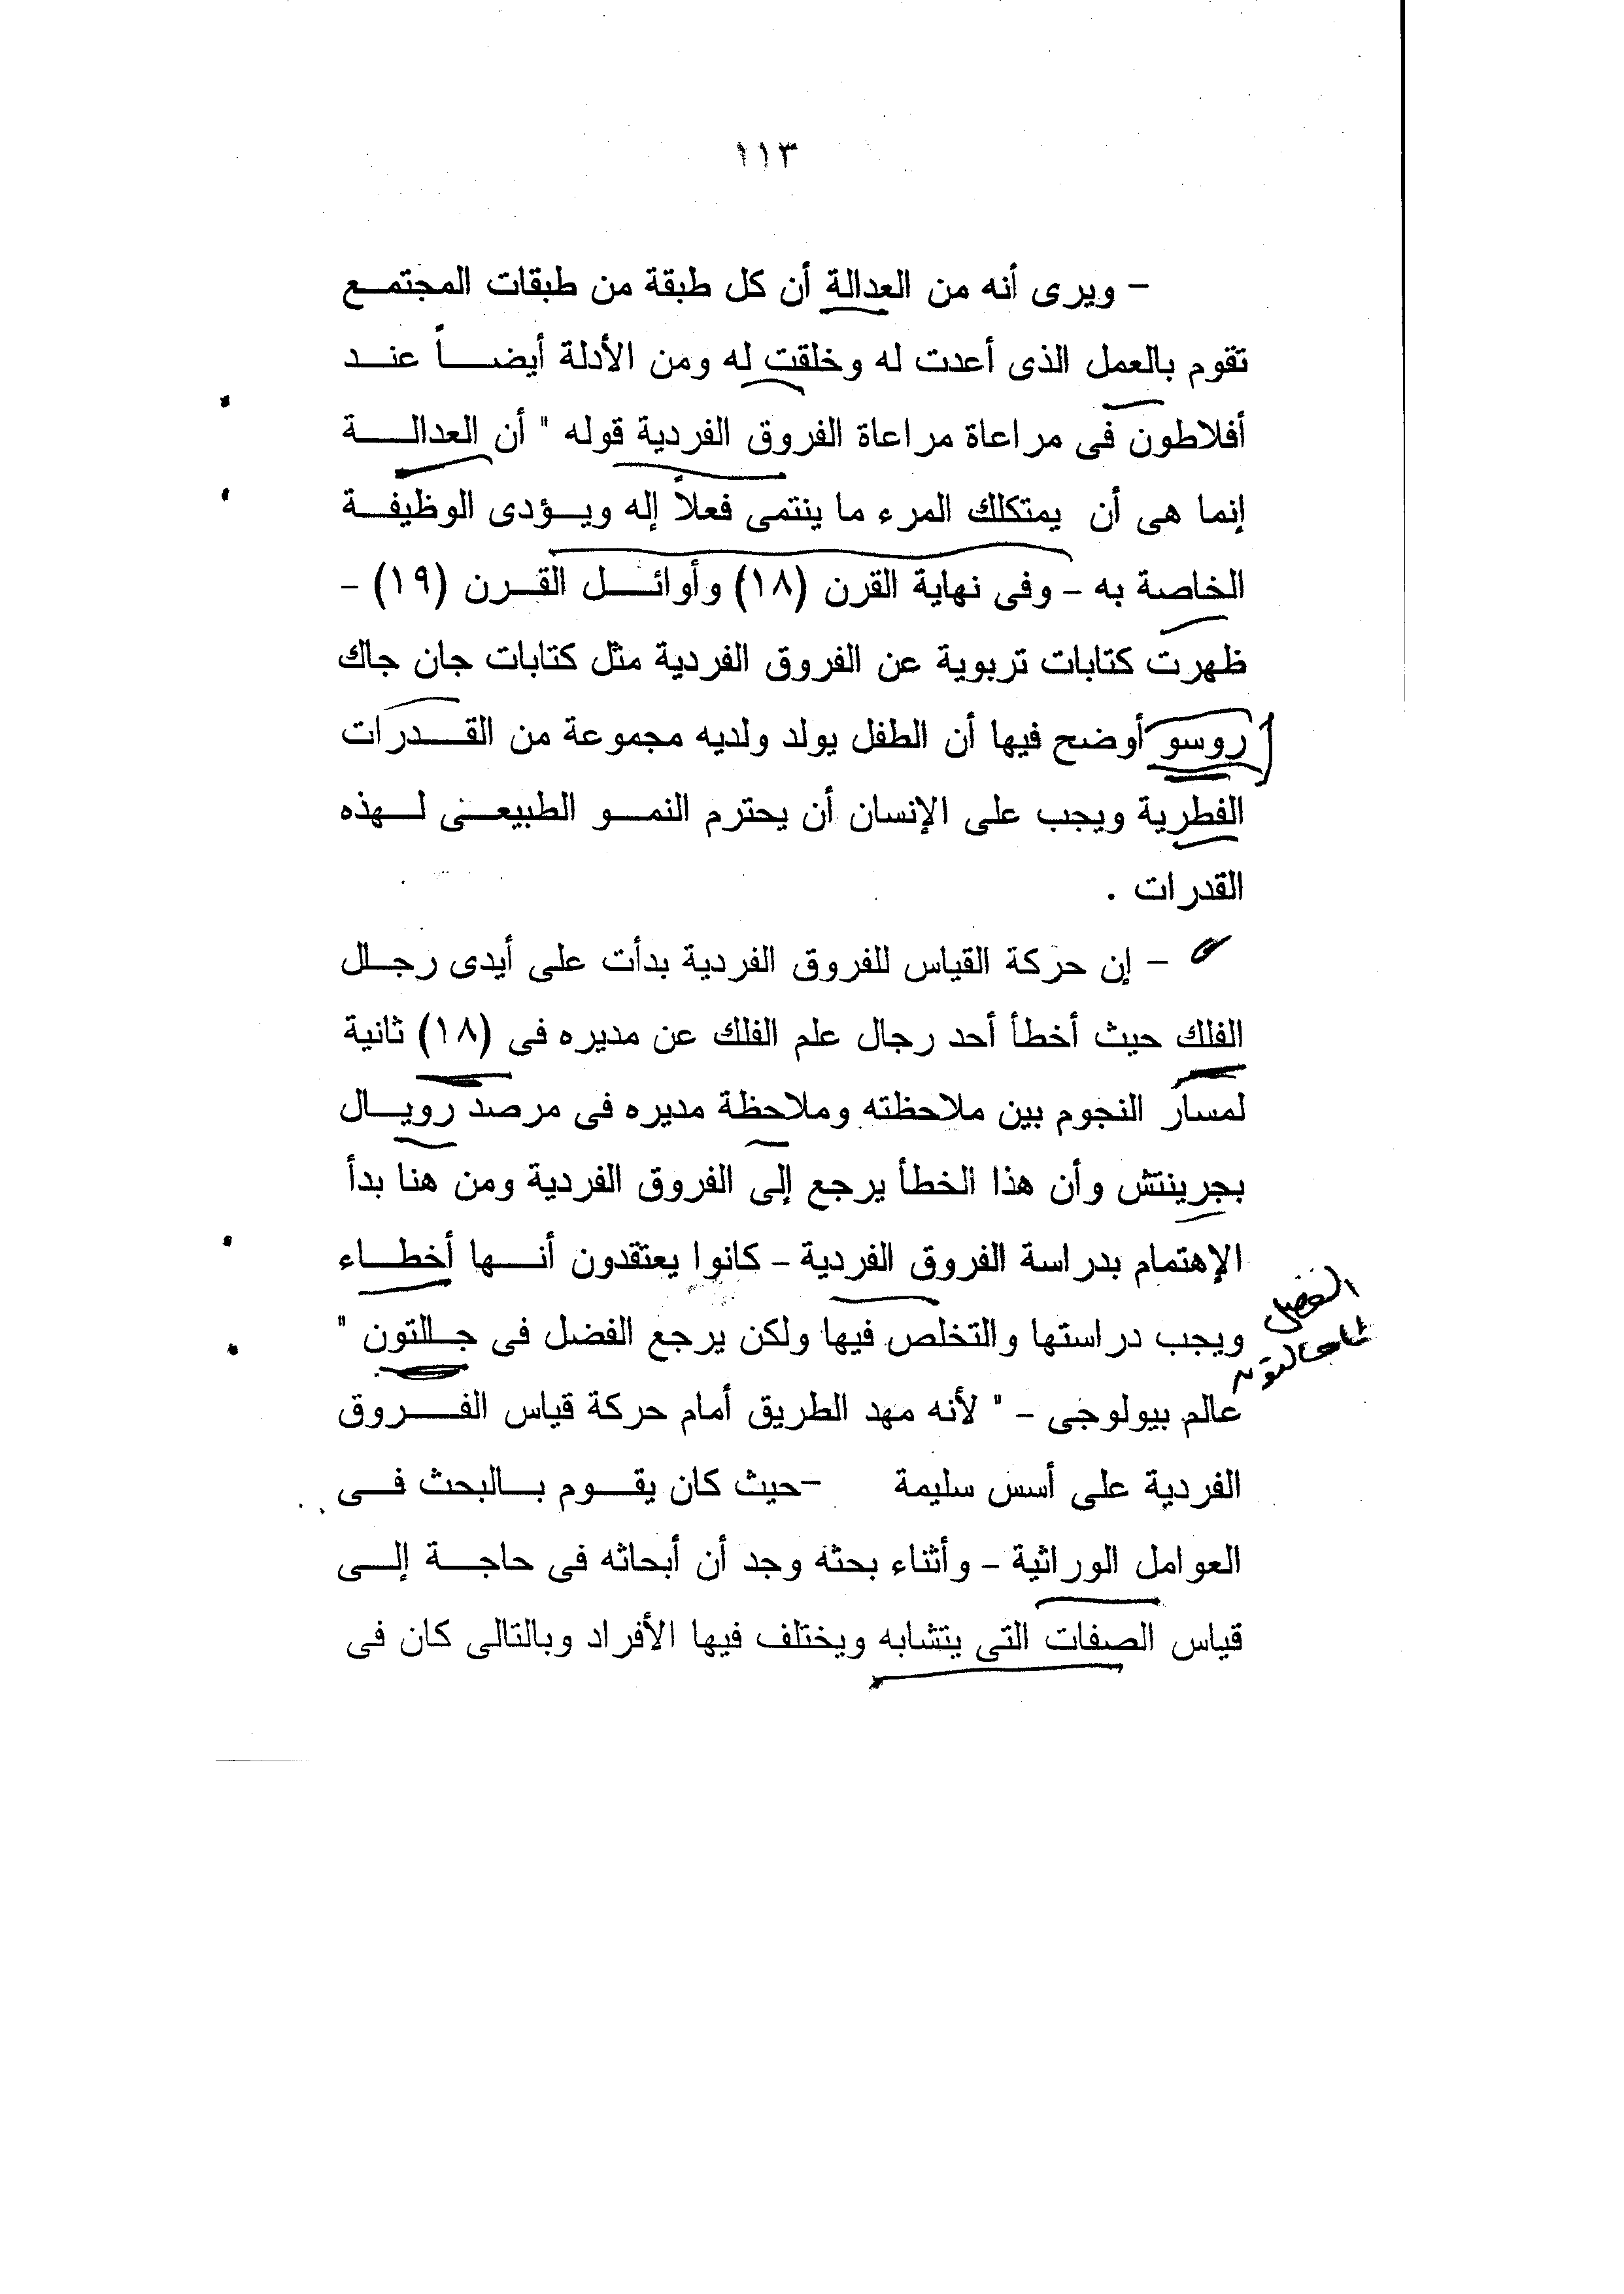 ١١٣
- ويرى أنه من العدالة أن كل طبقة من طبقات المجتمع
تقوم بالعمل الذى أعدت له وخلقت له ومن الأدلة أيضاً عند
أفلاطون فى مراعاة مراعاة الفروق الفردية قوله " أن العدالة
إنما هى أن يمتكلك المرء ما ينتمى فعلاً إله ويؤدى الوظيفة
الخاصة به - وفى نهاية القرن (١٨) وأوائل القرن (١٩) -
ظهرت كتابات تربوية عن الفروق الفردية مثل كتابات جان جاك
روسو أوضح فيها أن الطفل يولد ولديه مجموعة من القدرات
الفطرية ويجب على الإنسان أن يحترم النمو الطبيعى لهذه
القدرات .
- إن حركة القياس للفروق الفردية بدأت على أيدى رجل
الفلك حيث أخطأ أحد رجال علم الفلك عن مديره فى (١٨) ثانية
لمسار النجوم بين ملاحظته وملاحظة مديره فى مرصد رويال
بجرينتش وأن هذا الخطأ يرجع إلى الفروق الفردية ومن هنا بدأ
الإهتمام بدراسة الفروق الفردية - كانوا يعتقدون أنها أخطاء
ويجب دراستها والتخلص فيها ولكن يرجع الفضل فى جالتون "
عالم بيولوجى - " لأنه مهد الطريق أمام حركة قياس الفروق
الفردية على أسس سليمة -حيث كان يقوم بالبحث فى
العوامل الوراثية - وأثناء بحثه وجد أن أبحاثه فى حاجة إلى
قياس الصفات التى يتشابه ويختلف فيها الأفراد وبالتالى كان فى
الفضل
جالتون